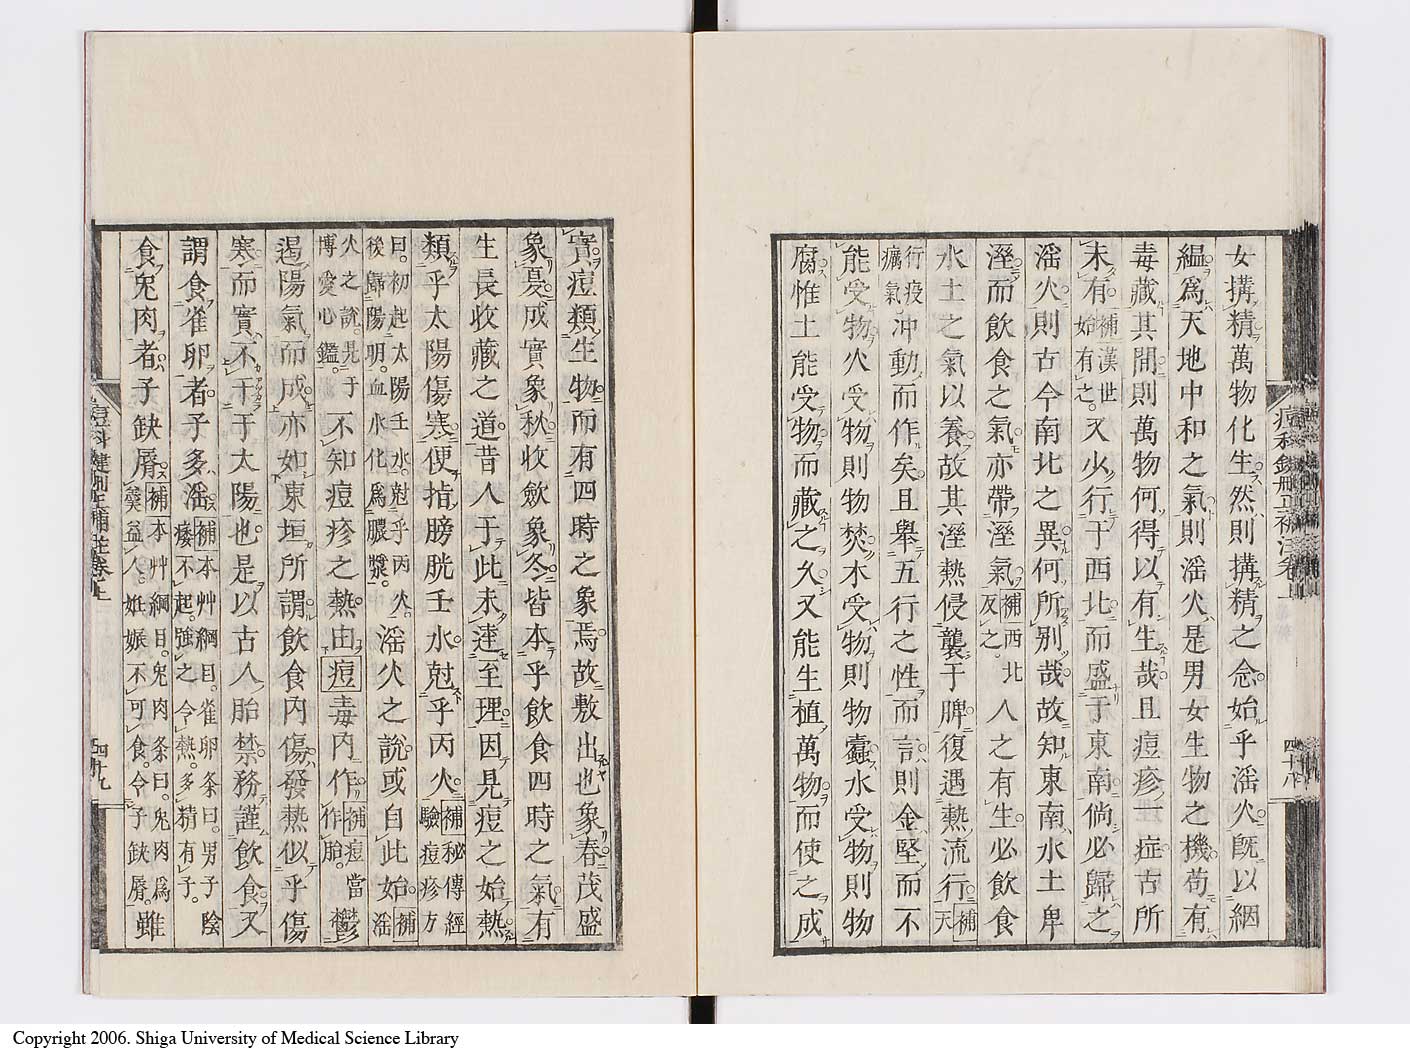 女搆精萬物化生然則搆精之念始乎淫火既以絪
縕爲天地中和之氣則淫火是男女生物之機苟有
毒藏其間則萬物何得以有生哉且痘疹一症古所
未有補漢世始有之又少行于西北而盛于東南倘必歸之
淫火則古今南北之異何所別哉故知東南水土卑
溼而飲食之氣亦帶溼氣補西北反之人之有生必飲食
水土之氣以養故其溼熱侵襲于脾復遇熱流行補天
行疫癘氣沖動而作矣且舉五行之性而言則金堅而不
能受物火受物則物焚木受物則物蠹水受物則物
腐惟土能受物而藏之久又能生植萬物而使之成
痘科鍵刪正補注卷上
四十八
實痘類生物而有四時之象焉故敷出也象春茂盛
象夏成實象秋收斂象冬皆本乎飲食四時之氣有
生長收藏之道昔人于此未達至理因見痘之始熱
類乎太陽傷寒便指膀胱壬水尅乎丙火補秘傳經驗痘疹方
曰初起太陽壬水尅乎丙火後歸陽明血水化爲膿漿淫火之說或自此始補淫
火之說見于博愛心鑑不知痘疹之熱由痘毒内作補痘當作胎鬱
遏陽氣而成亦如東垣所謂飲食内傷發熱似乎傷
寒而實不干于太陽也是以古人胎禁務謹飲食又
謂食雀卵者子多淫補本艸綱目雀卵条曰男子陰痿不起強之令熱多精有子
食兔肉者子缺脣補本艸綱目兔肉条曰兔肉爲羹益人妊娠不可食令子缺脣雖
痘科鍵刪正補註卷之上
四十九
Copyright 2006. Shiga University of Medical Science Library